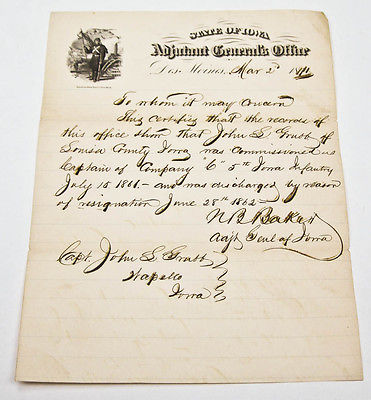 STATE OF IOWA
Adjutant General's Office
Des Moines, Mar 2d 187
To whom it may concern
This certifies that the records of
this office show that John L Grubb of
Louisa County Iowa was Commissioned as
Captain of Company "C" 5th Iowa Infantry
July 15 1861.- and was discharged by reason
of resignation June 28th 1862-
N B Baker
Adjt Genl of Iowa
Capt. John L Grubb
Wapello
Iowa